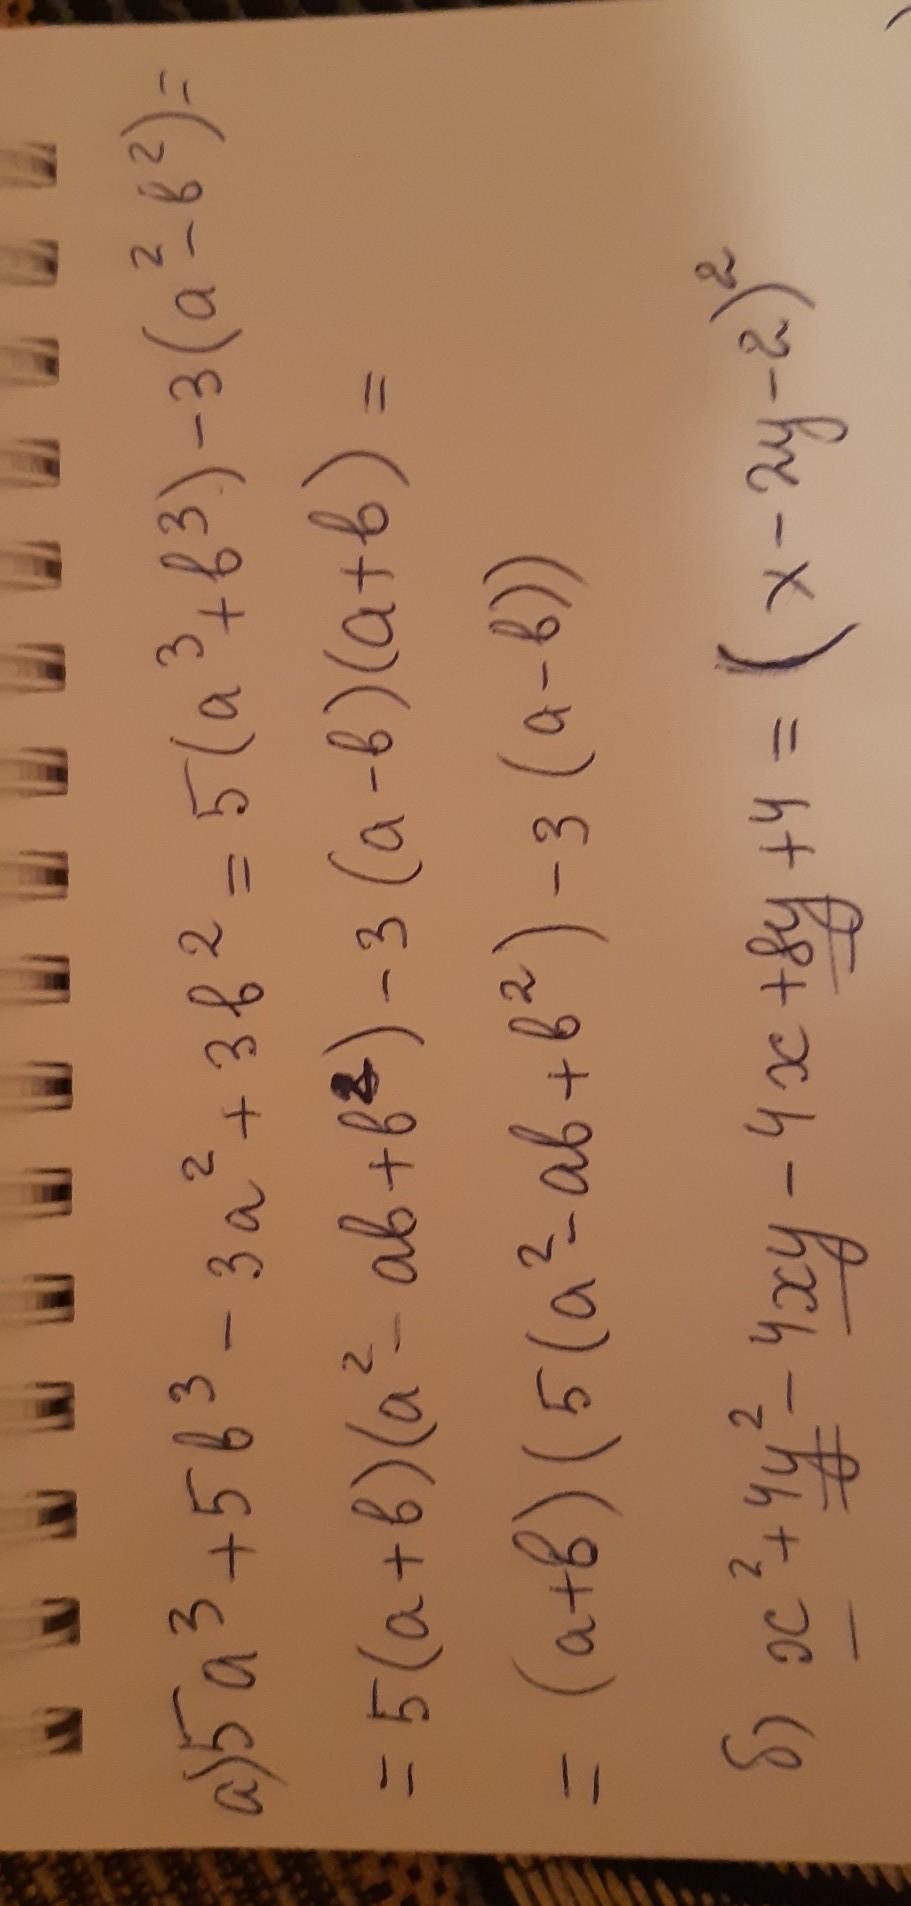 а) 5a³ + 5b³ - 3a² + 3b² = 5(a³ + b³) - 3(a² - b²) =
= 5(a + b)(a² - ab + b²) - 3(a - b)(a + b) =
= (a + b)(5(a² - ab + b²) - 3(a - b))
б) x² + 4y² - 4xy - 4x + 8y + 4 = (x - 2y - 2)²